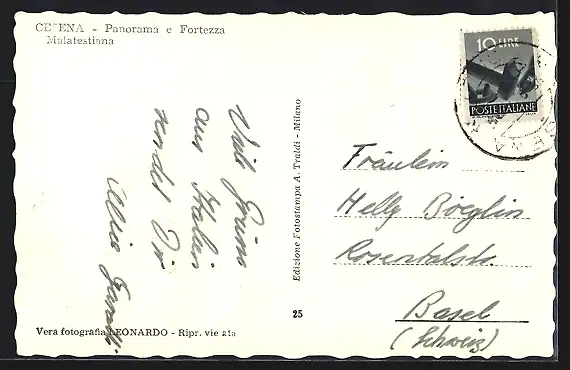 CESENA - Panorama e Fortezza
Malatestiana
10 LIRE
POSTE ITALIANE
Viele Grüsse
aus Italien
sendet Dir
Edizione Fotostampa A. Traldi - Milano
Fräulein
Helly Böeglin
Rosentalstr.
Basel
(Schweiz)
25
Vera fotografia LEONARDO - Ripr. vietata